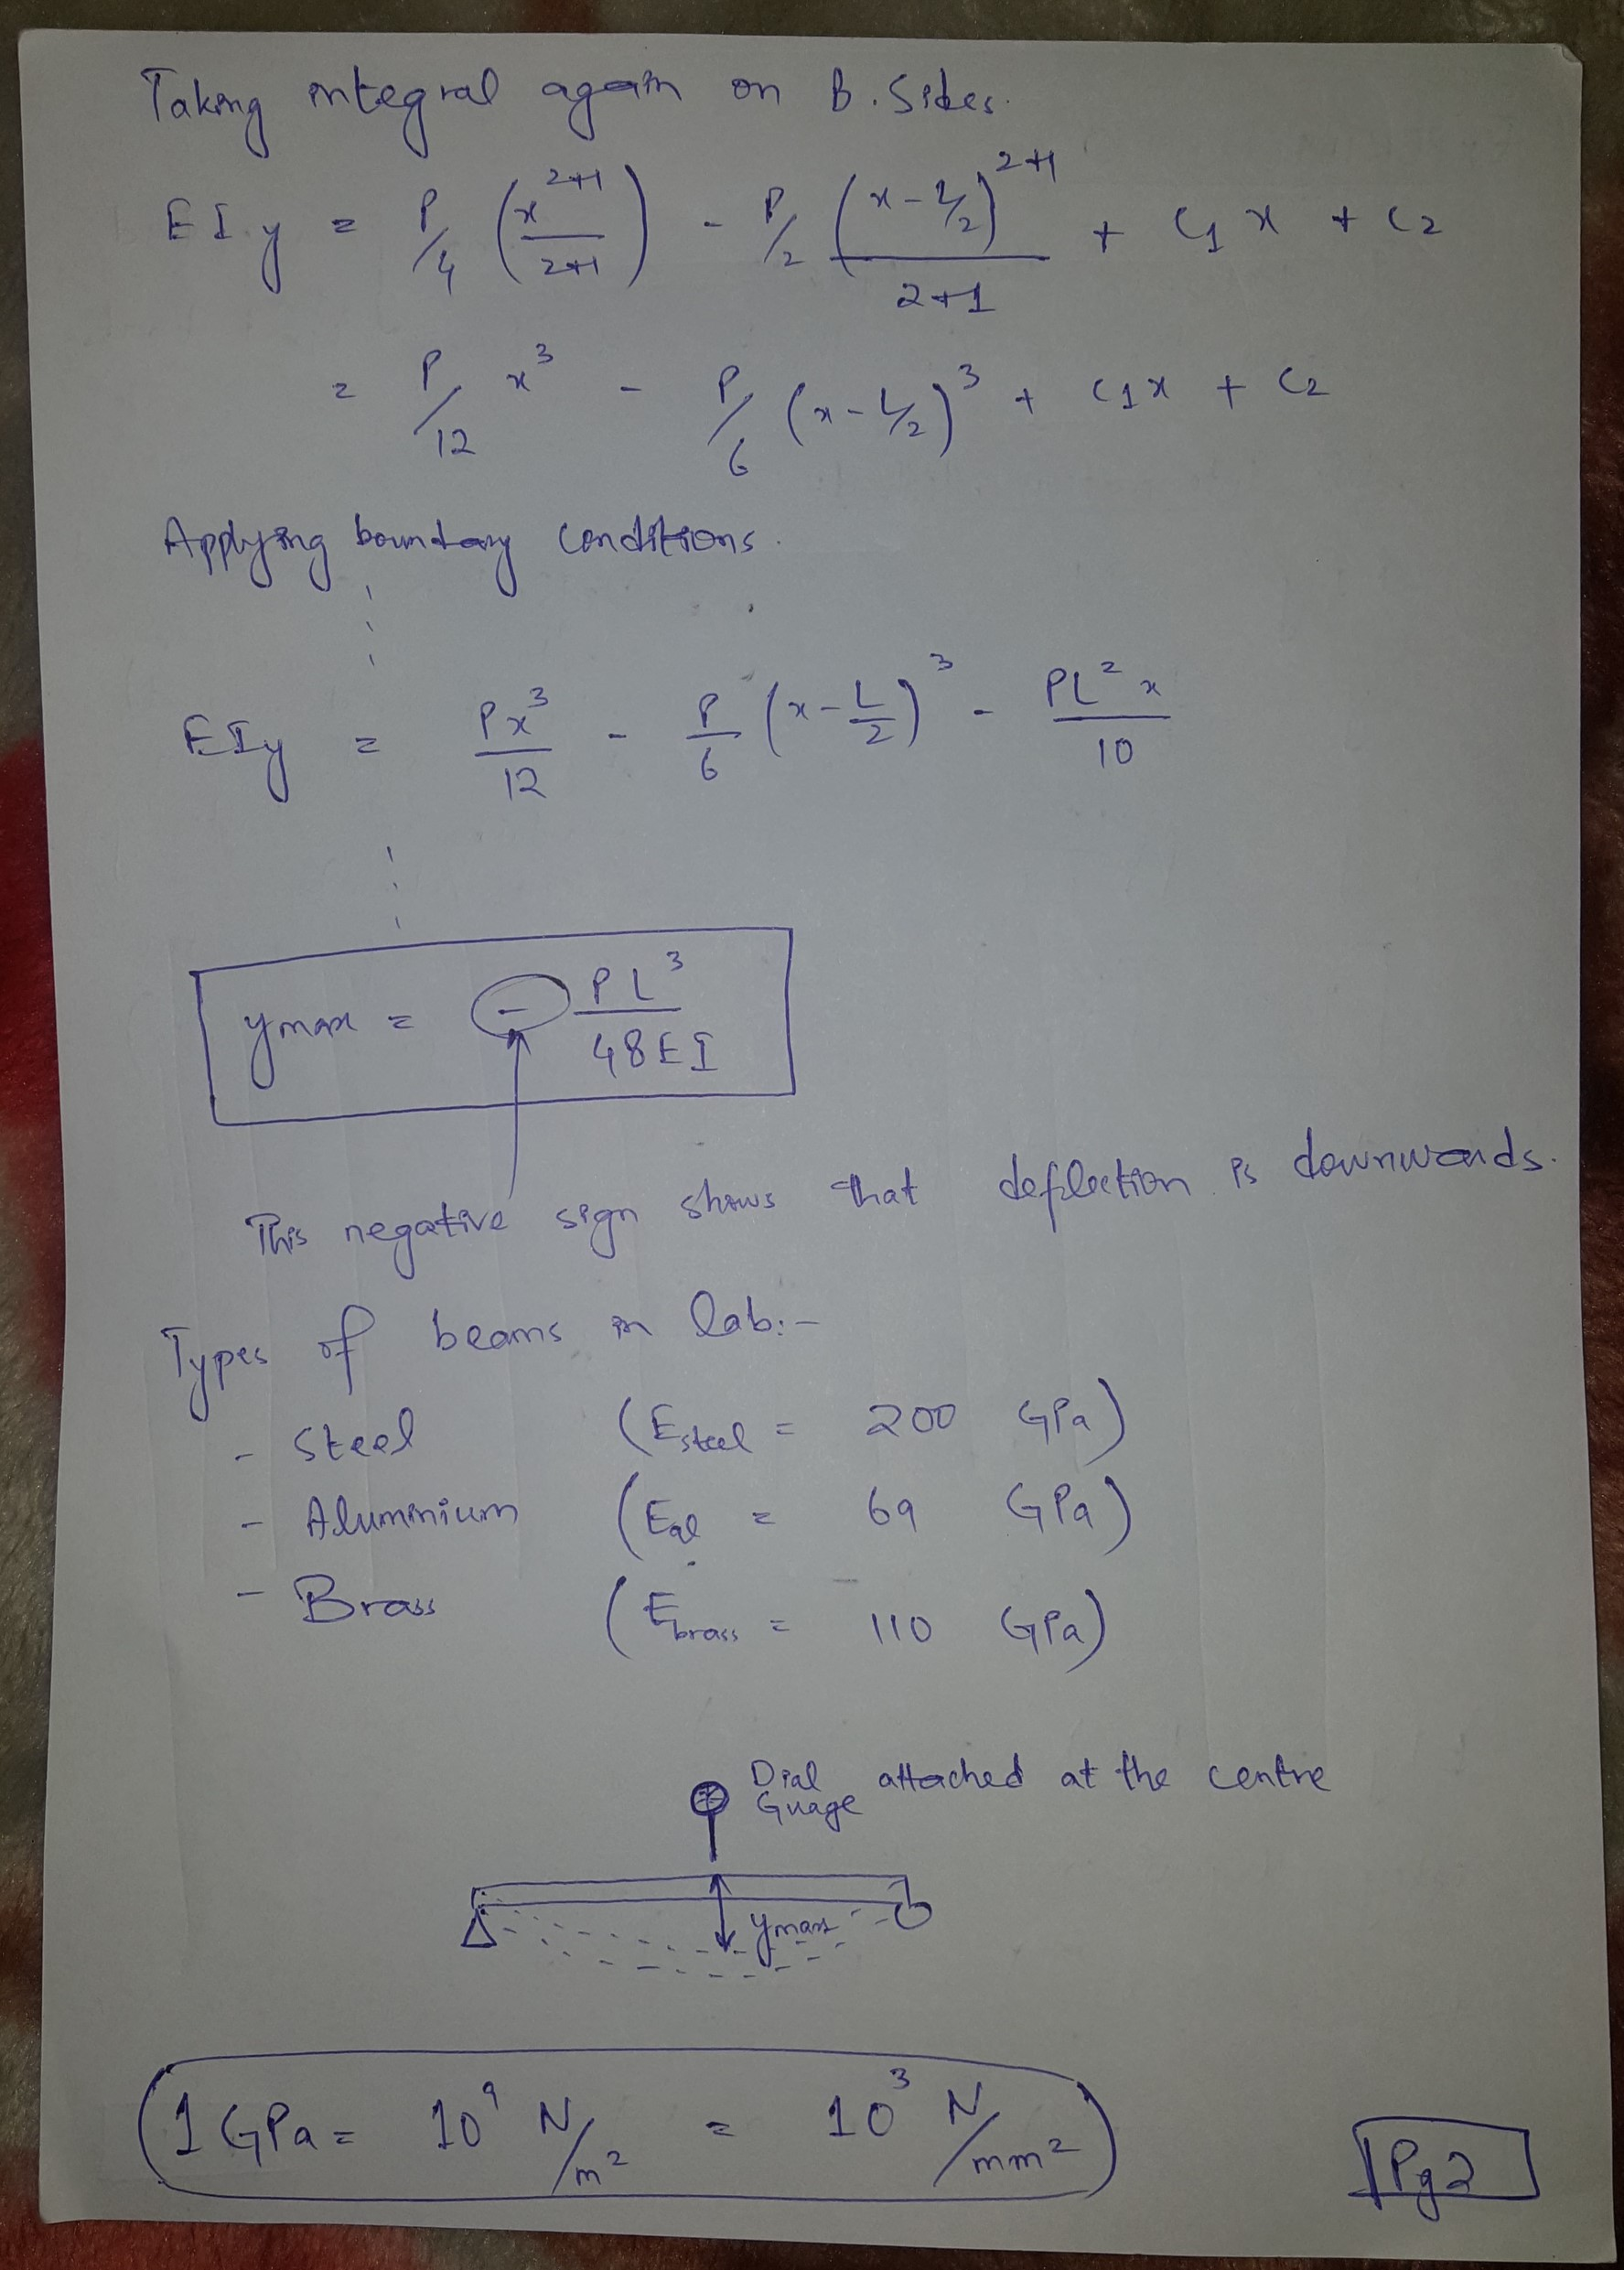 Taking integral again on B. Sides.
EIy = P/4 (x^(2+1)/(2+1)) - P/2 (x-L/2)^(2+1)/(2+1) + C1x + C2
= P/12 x³ - P/6 (x-L/2)³ + C1x + C2
Applying boundary conditions.
EIy = Px³/12 - P/6 (x-L/2)³ - PL²x/10
ymax = - PL³/48EI
This negative sign shows that deflection is downwards.
Types of beams in lab:-
- Steel (Esteel = 200 GPa)
- Aluminium (Eal = 69 GPa)
- Brass (Ebrass = 110 GPa)
Dial Guage attached at the centre
ymax
1 GPa = 10⁹ N/m² = 10³ N/mm²
Pg2